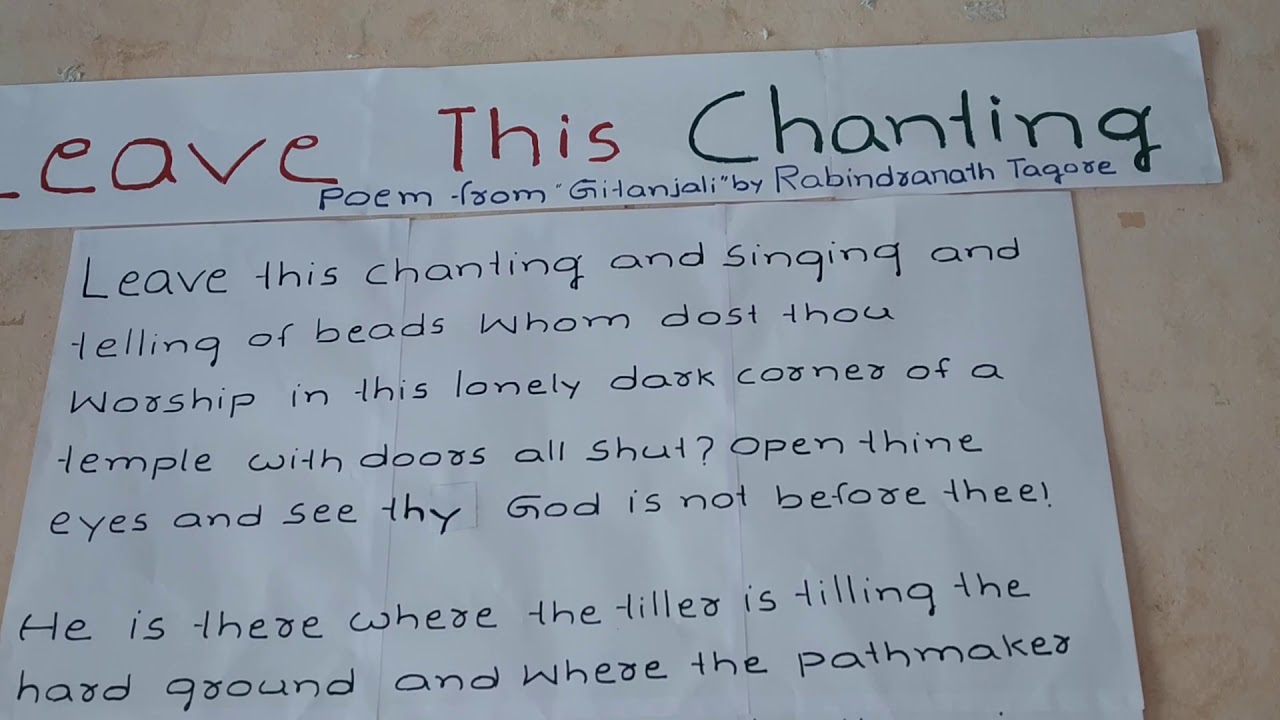 Leave This Chanting
Poem from "Gitanjali" by Rabindranath Tagore
Leave this chanting and singing and
telling of beads Whom dost thou
Worship in this lonely dark corner of a
temple with doors all shut? Open thine
eyes and see thy God is not before thee!
He is there where the tiller is tilling the
hard ground and where the pathmaker